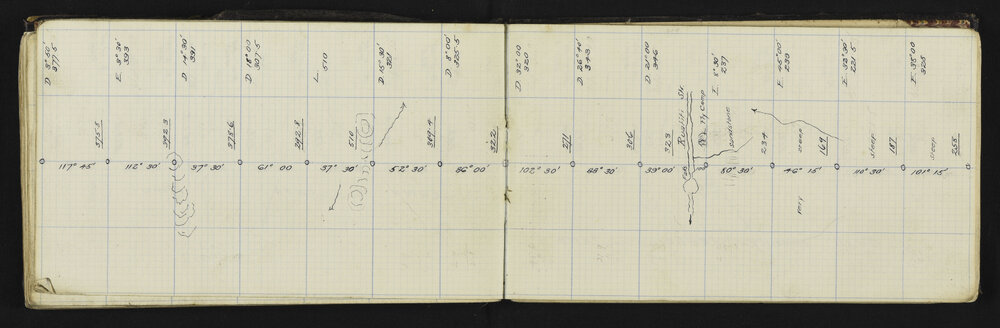 D 8°50' 377.5
E 8°30' 393
D 14°30' 391
D 18°00' 307.5
L 510
D 15°30' 521
D 8°00' 325.5
D 32°00 320
D 26°40' 343
D 21°00 346
E 8°30' 237
E 45°00' 239
E 38°30' 221.5
E 35°00 325
375.5
392.3
375.6
292.3
510
369.4
322
271
306
323
Rualiti Str.
My Camp
sandstone
234
steep
169
steep
187
steep
255
117° 45'
112° 30'
37° 30'
61° 00
37° 30'
52° 30'
86° 00'
102° 30'
88° 30'
39° 00'
80° 30'
46° 15'
110° 30'
101° 15'
very